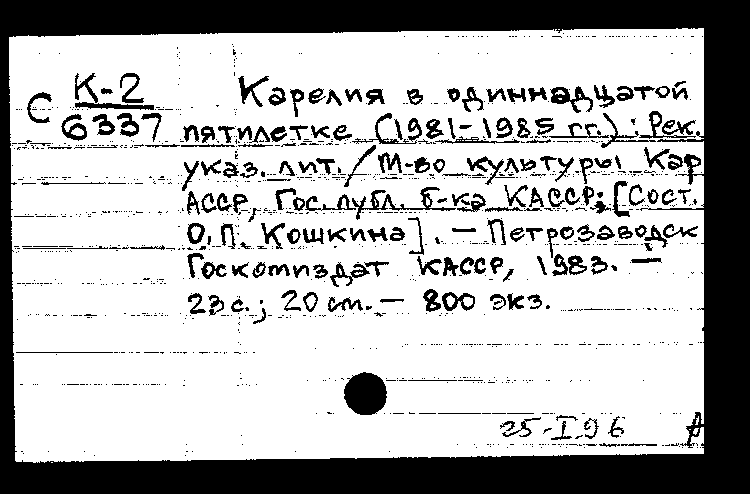 С К-2
6337
Карелия в одиннадцатой
пятилетке (1981-1985 гг.) : Рек.
указ. лит. / М-во культуры Кар
АССР, Гос. публ. б-ка КАССР; [Сост.
О.П. Кошкина]. — Петрозаводск
Госкомиздат КАССР, 1983. —
23 с.; 20 см. — 800 экз.
25-I.96